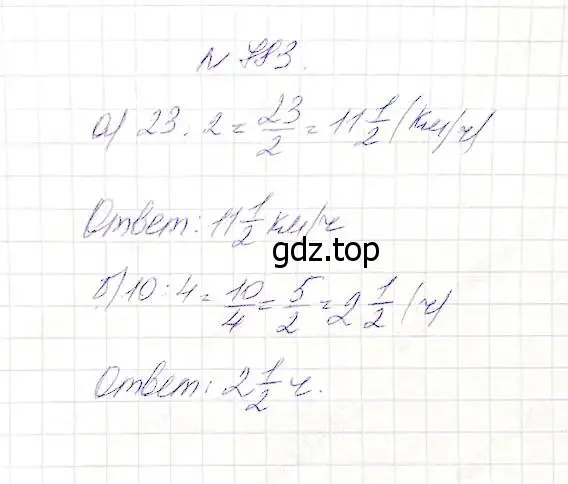 № 783.
а) 23 : 2 = 23/2 = 11 1/2 (км/ч)
Ответ: 11 1/2 км/ч
gdz.top
б) 10 : 4 = 10/4 = 5/2 = 2 1/2 (ч)
Ответ: 2 1/2 ч.